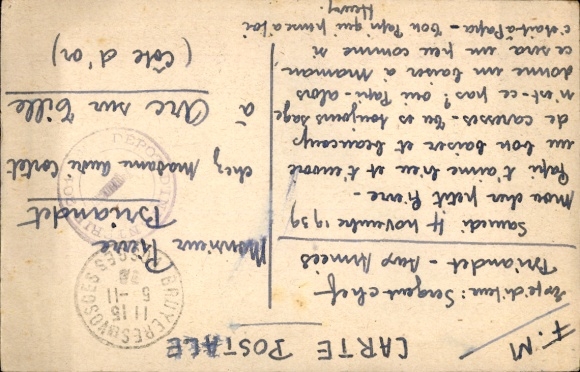 F.M
CARTE POSTALE
Expéditeur: Sergent chef
Briandet - aux Armées
Samedi 4 novembre 1939
Mon cher petit Pierre -
Papi t'aime bien et t'envoie
un bon baiser et beaucoup
de caresses - Tu es toujours sage
n'est-ce pas? oui Papi - alors
donne un baiser à maman
ce sera un peu comme si
c'était à Papa - ton Papi qui pense à toi
Henry.
BRUYERES EN VOSGES
11 15
5 - 11
39
VOSGES
Monsieur Pierre
Briandet
chez Madame Cortet
à Arc sur Tille
(Côte d'or)
DEPOT